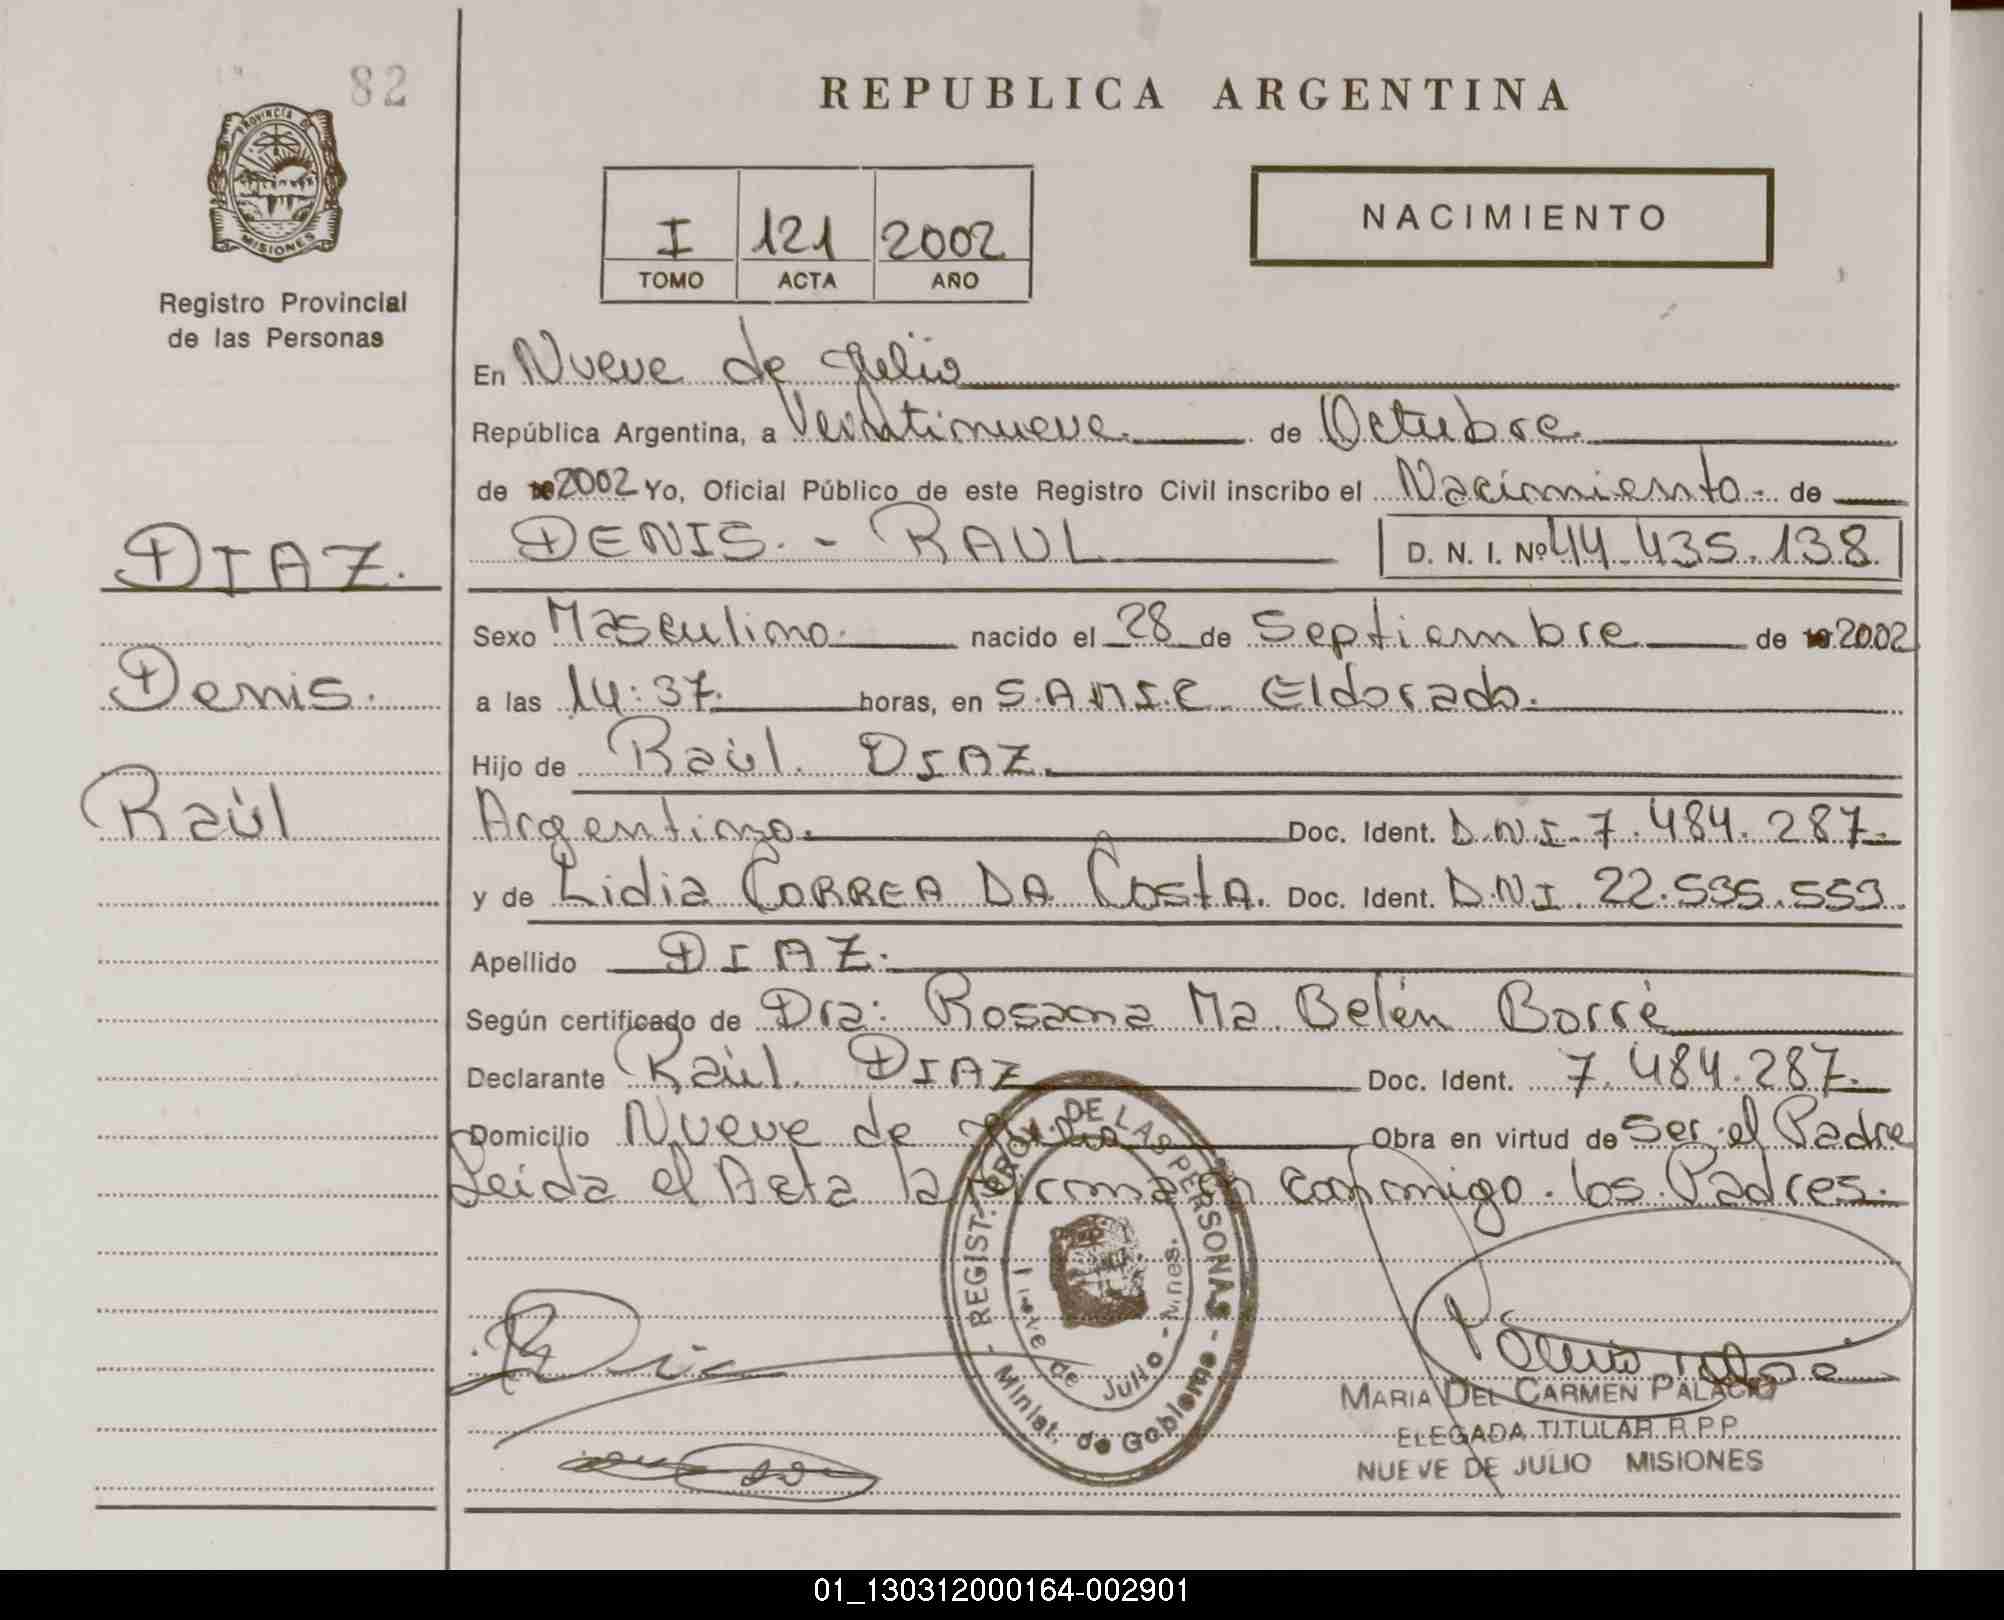 82
PROVINCIA DE
MISIONES
Registro Provincial
de las Personas
REPUBLICA ARGENTINA
I 121 2002
TOMO ACTA AÑO
NACIMIENTO
En Nueve de Julio
República Argentina, a Veintinueve. de Octubre.
de 2002 Yo, Oficial Público de este Registro Civil inscribo el Nacimiento- de
DENIS.- RAUL D. N. I. Nº 44.435.138
DIAZ.
Denis.
Raúl
Sexo Masculino. nacido el 28 de Septiembre de 2002
a las 14:37. horas, en S.A.M.I.C. Eldorado.
Hijo de Raúl. DIAZ.
Argentino. Doc. Ident. D.N.I. 7.484.287.
y de Lidia CORREA DA CostA. Doc. Ident. D.N.I. 22.535.553.
Apellido DIAZ.
Según certificado de Dra: Rosana Ma. Belén Borré
Declarante Raúl. DIAZ Doc. Ident. 7.484.287.
Domicilio Nueve de Julio Obra en virtud de Ser el Padre
Leida el Acta la firman conmigo. los Padres.
REGIST. PROV. DE LAS PERSONAS - Minist. de Gobierno -
Nueve de Julio - Mnes.
MARIA DEL CARMEN PALACIO
ELEGADA TITULAR R.P.P.
NUEVE DE JULIO MISIONES
01_130312000164-002901